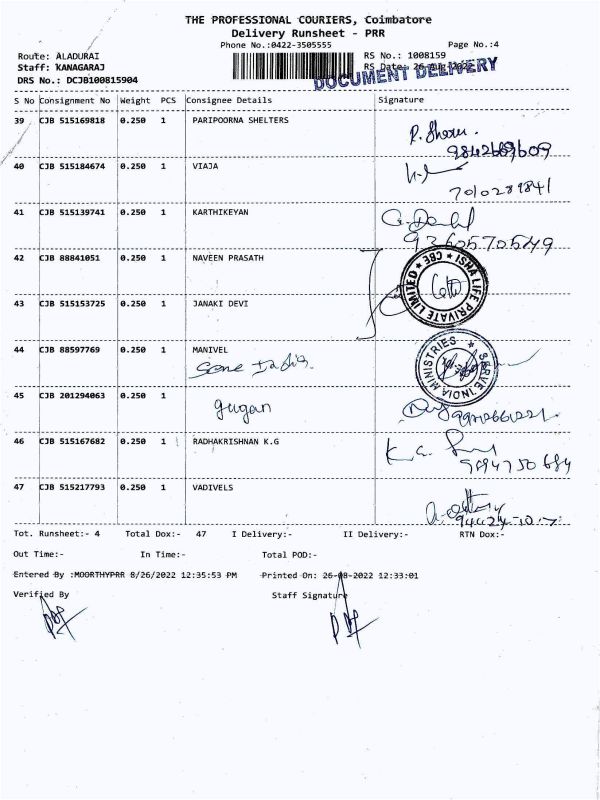 THE PROFESSIONAL COURIERS, Coimbatore
Delivery Runsheet - PRR
Phone No.:0422-3505555 Page No.:4
Route: ALADURAI RS No.: 1008159
Staff: KANAGARAJ RS Date: 26-Aug-2022
DRS No.: DCJB100815904
DOCUMENT DELIVERY
S No Consignment No Weight PCS Consignee Details Signature
39 CJB 515169818 0.250 1 PARIPOORNA SHELTERS
40 CJB 515184674 0.250 1 VIAJA
7010289841
41 CJB 515139741 0.250 1 KARTHIKEYAN
9360570549
42 CJB 88841051 0.250 1 NAVEEN PRASATH
ISHA LIFE PRIVATE LIMITED * CBE *
43 CJB 515153725 0.250 1 JANAKI DEVI
44 CJB 88597769 0.250 1 MANIVEL
SERVE INDIA MINISTRIES *
45 CJB 201294063 0.250 1
gugan
46 CJB 515167682 0.250 1 RADHAKRISHNAN K.G
9894750684
47 CJB 515217793 0.250 1 VADIVELS
Tot. Runsheet:- 4 Total Dox:- 47 I Delivery:- II Delivery:- RTN Dox:-
Out Time:- In Time:- Total POD:-
Entered By :MOORTHYPRR 8/26/2022 12:35:53 PM Printed On: 26-08-2022 12:33:01
Verified By Staff Signature